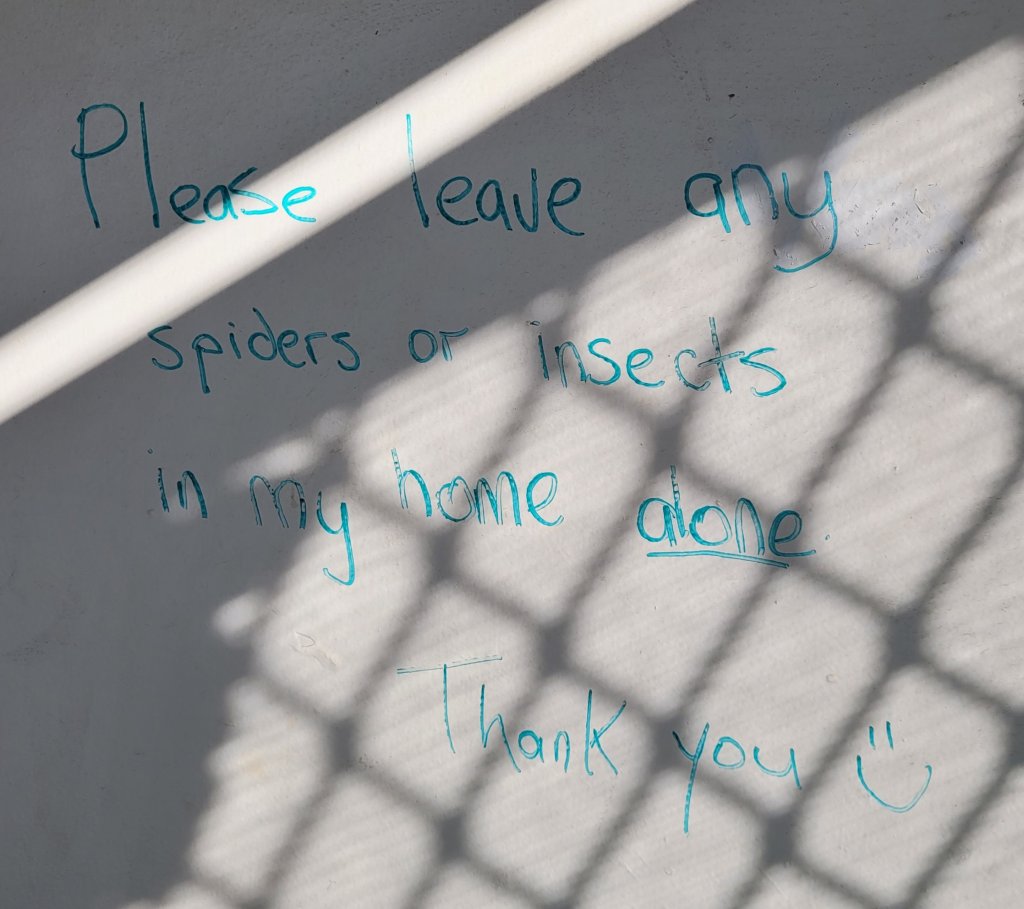 Please leave any
spiders or insects
in my home alone.
Thank you :)